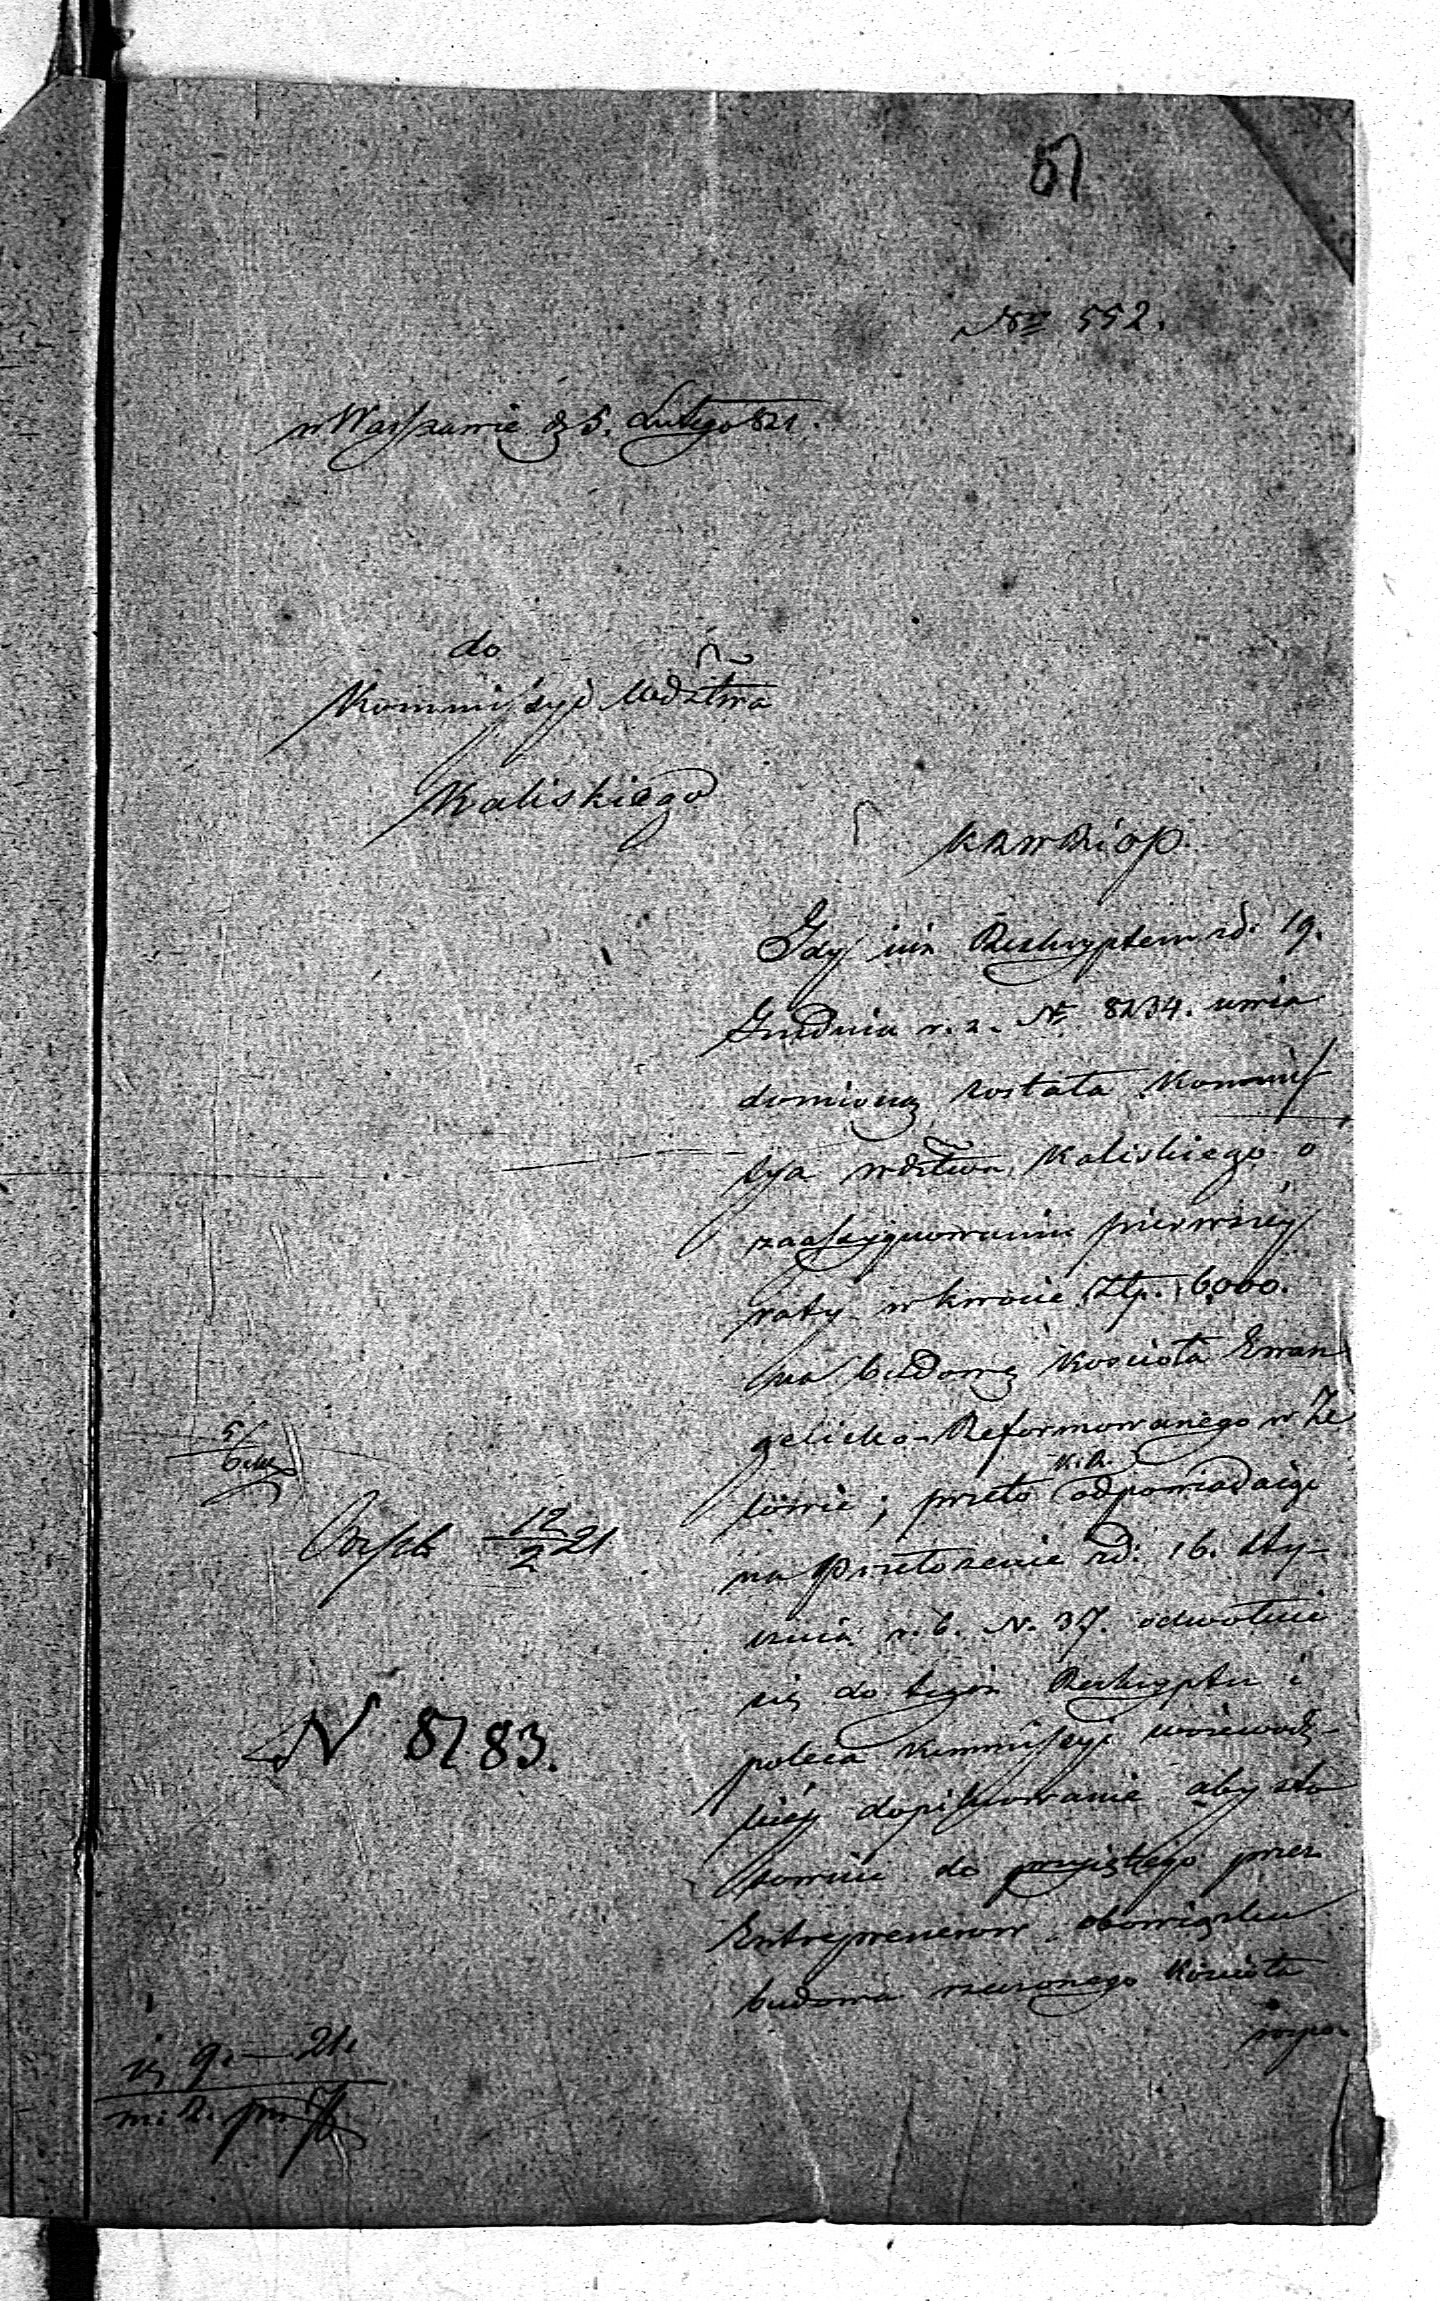 57
Nro 552.
w Warszawie d. 5. Lutego 821.
do
Kommissyi Wdztwa
Kaliskiego
KRWRiOP.
Gdy iuż Reskryptem zd: 19.
Grudnia r. z. Nr 8234. uwia
domioną została Kommis
sya Wdztwa Kaliskiego o
zaassygnowaniu pierwszéy
raty w kwocie Złp. 6000.
na budowę Kościoła Ewan
gelicko-Reformowanego w Ze
lowie; przeto K.R. odpowiadaiąc
na Przełożenie zd: 16. Sty-
cznia r. b. N. 37. odwołuie
się do tegoż Reskryptu i
poleca Kommissyi Woiewódz-
kiéy dopilnowanie aby sto
sownie do przyiętego przez
Entreprenerow obowiązku
budowa rzeczonego Kościoła
rozpo
12
2 21
N 8783.
9. — 21.